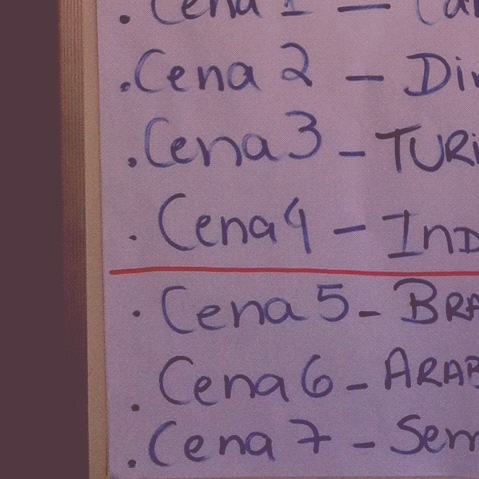 . Cena 1 —
. Cena 2 – Di
. Cena 3 – TURI
. Cena 4 – IND
. Cena 5 – BRA
. Cena 6 – ARAB
. Cena 7 – Sem